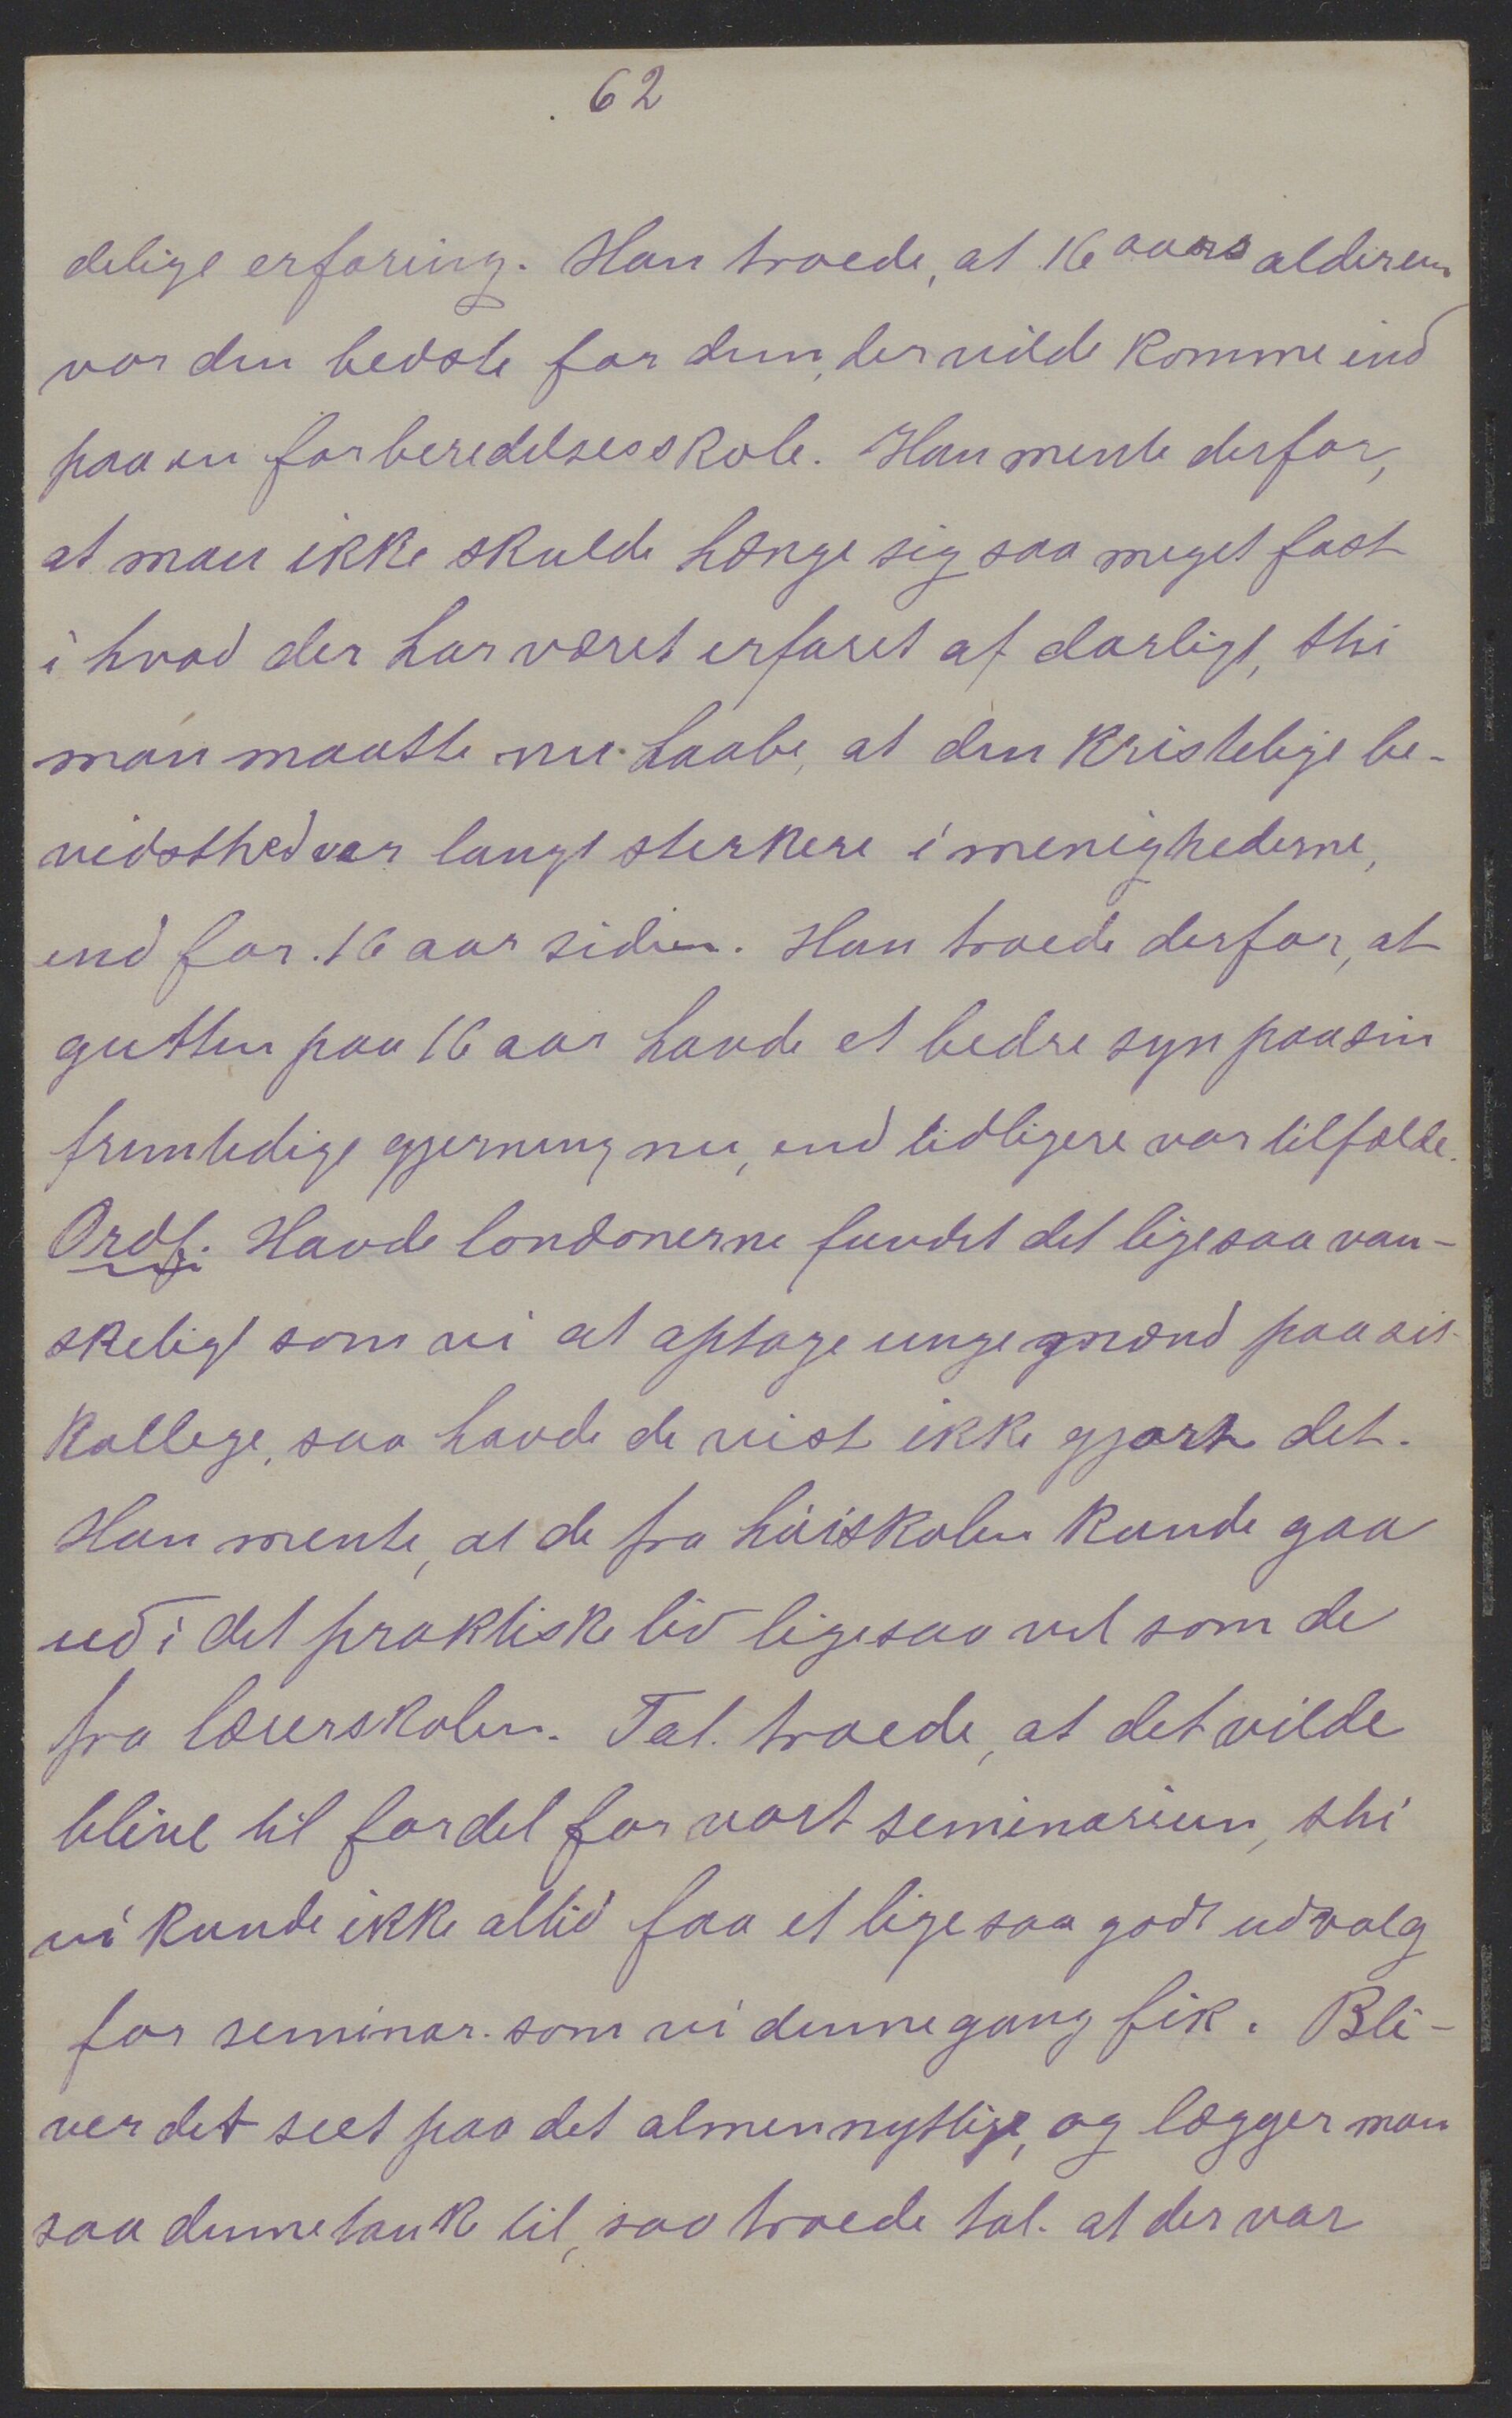 62
delige erfaring. Han troede, at 16 aars alderen
var den bedste for dem, der vilde komme ind
paa en forberedelsesskole. Han mente derfor,
at man ikke skulde hænge sig saa meget fast
i hvad der har været erfaret af darligt, thi
man maatte nu haabe, at den kristelige be-
vidsthed var langt sterkere i menighederne,
end for 16 aar siden. Han troede derfor, at
gutten paa 16 aar havde et bedre syn paa sin
fremtidige gjerning nu, end tidligere var tilfælde.
Ordf. Havde londonerne fundet det ligesaa van-
skeligt som vi at optage unge mænd paa sit
kollege, saa havde de vist ikke gjort det.
Han mente, at de fra høiskolen kunde gaa
ud i det praktiske liv ligesaa vel som de
fra lærerskolen. Tal. troede, at det vilde
blive til fordel for vort seminarium, thi
vi kunde ikke altid faa et lige saa godt udvalg
for seminar. som vi denne gang fik. Bli-
ver det seet paa det almennyttige, og lægger man
saa denne tank til, saa troede tal. at der var